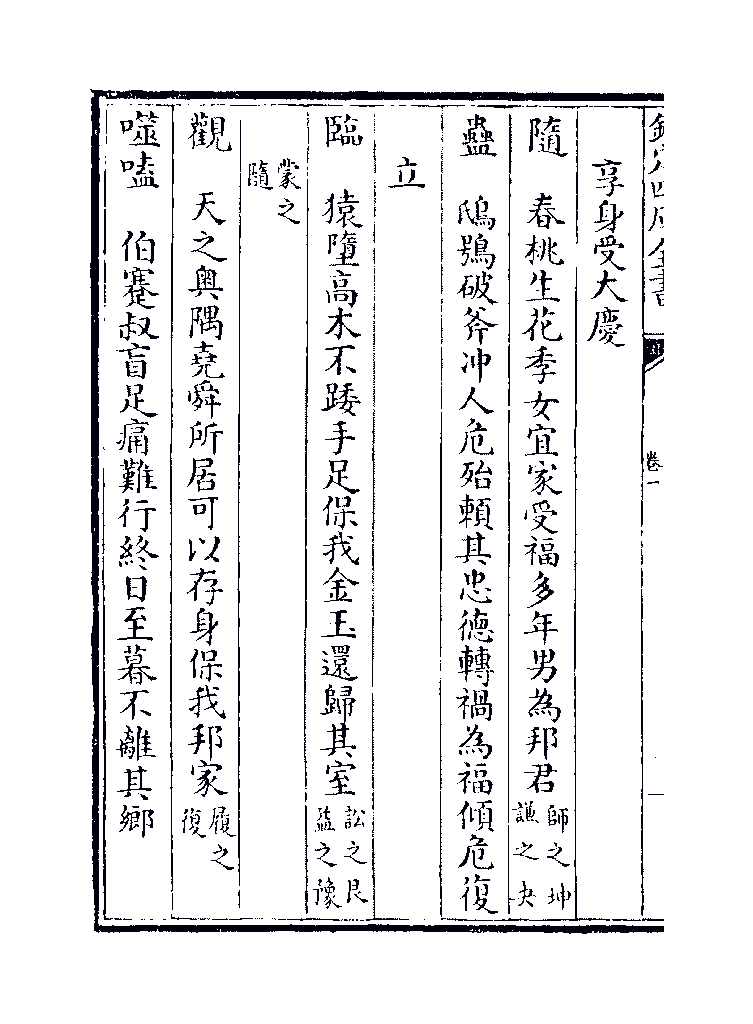 欽定四庫全書
卷一
享身受大慶
隨 春桃生花季女宜家受福多年男為邦君師之坤謙之夬
蠱 鴟鴞破斧冲人危殆賴其忠德轉禍為福傾危復
立
臨 猿墮高木不踒手足保我金玉還歸其室訟之艮蠱之豫
蒙之隨
觀 天之奥隅堯舜所居可以存身保我邦家履之復
噬嗑 伯蹇叔盲足痛難行終日至暮不離其鄉